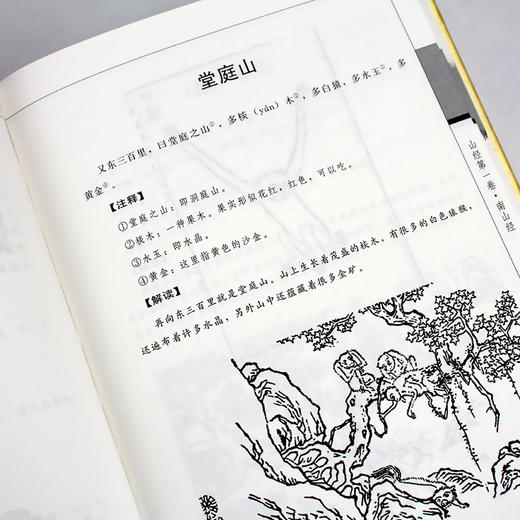 堂庭山
又东三百里，曰堂庭之山①，多棪（yán）木②，多白猿，多水玉③，多
黄金④。
【注释】
①堂庭之山：即洞庭山。
②棪木：一种果木。果实形似花红，红色，可以吃。
③水玉：即水晶。
④黄金：这里指黄色的沙金。
【解读】
再向东三百里就是堂庭山。山上生长着茂盛的棪木，有很多的白色猿猴，
还遍布着许多水晶，另外山中还蕴藏着很多金矿。
山经第一卷·南山经